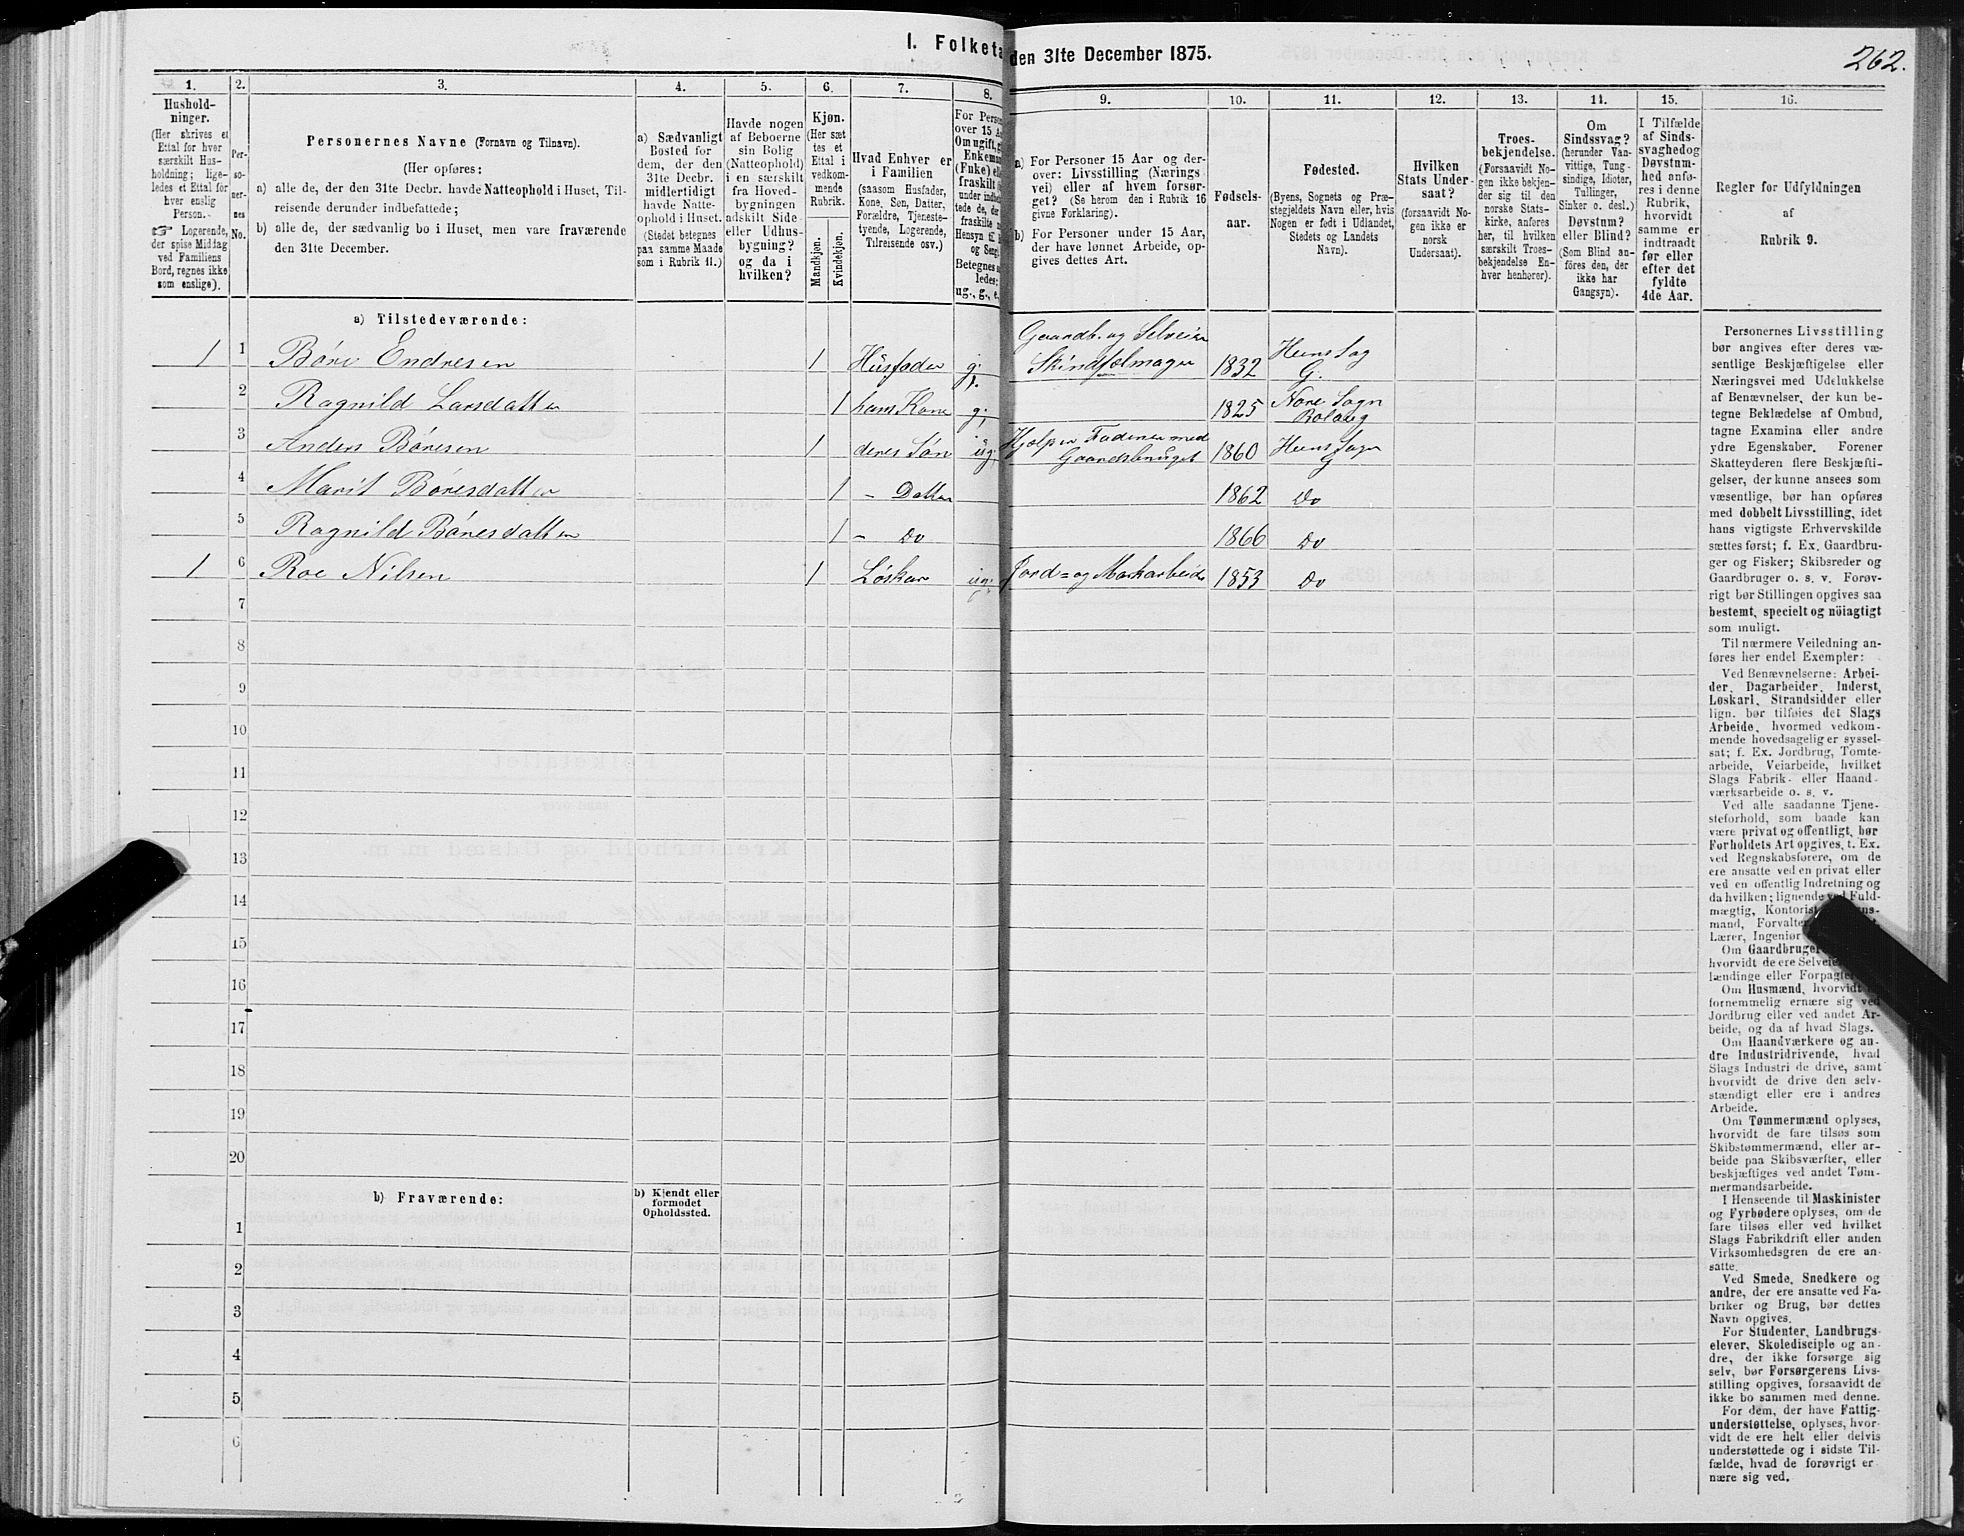 I. Folketa den 31te December 1875.
262.
1. 2. 3. 4. 5. 6. 7. 8. 9. 10. 11. 12. 13. 14. 15. 16.
Hushold-
ninger.
(Her skrives et
Ettal for hver
særskilt Hus-
holdning; lige-
ledes et Ettal for
hver enslig
Person.
☞ Logerende,
der spise Middag
ved Familiens
Bord, regnes ikke
som enslige).
Per-
so-
ner-
nes
No.
Personernes Navne (Fornavn og Tilnavn).
(Her opføres:
a) alle de, der den 31te Decbr. havde Natteophold i Huset, Til-
reisende derunder indbefattede;
b) alle de, der sædvanlig bo i Huset, men vare fraværende
den 31te December.
a) Sædvanligt
Bosted for
dem, der den
31te Decbr.
midlertidigt
havde Natte-
ophold i Huset.
(Stedet betegnes
paa samme Maade
som i Rubrik 11.)
Havde nogen
af Beboerne
sin Bolig
(Natteophold)
i en særskilt
fra Hoved-
bygningen
adskilt Side-
eller Udhus-
bygning?
og da i
hvilken?
Kjøn.
(Her sæt-
tes et
Ettal i
vedkom-
mende
Rubrik.
Mandkjøn.
Kvindekjøn.
Hvad Enhver er
i Familien
(saasom Husfader,
Kone, Søn, Datter,
Forældre, Tjeneste-
tyende, Logerende,
Tilreisende osv.)
For Person
over 15 Aa
Om ugift, g
Enkeman
(Fnke) el
fraskilt
under indbe
tede de, der
fraskilte
Hensyn til
og Seng
Betegnes
ledes:
ug., g., e.
a) For Personer 15 Aar og der-
over: Livsstilling (Nærings
vei) eller af hvem forsør-
get? (Se herom den i Rubrik 16
givne Forklaring).
b) For Personer under 15 Aar,
der have lønnet Arbeide, op-
gives dettes Art.
Fødsels-
aar.
Fødested.
(Byens, Sognets og Præ-
stegjeldets Navn eller, hvis
Nogen er født i Udlandet,
Stedets og Landets
Navn).
Hvilken
Stats Under-
saat?
(forsaavidt No-
gen ikke er
norsk
Undersaat).
Troes-
bekjendelse.
(Forsaavidt No-
gen ikke bekjen-
der sig til den
norske Stats-
kirke, anføres
her, til hvilken
særskilt Troes-
bekjendelse En-
hver henhører).
Om
Sindssvag?
(herunder Van-
vittige, Tung-
sindige, Idioter,
Tullinger,
Sinker o. desl.)
Døvstum?
eller Blind?
(Som Blind an-
føres den, der
ikke har
Gangsyn).
I Tilfælde
af Sinds-
svaghed og
Døvstum-
hed anfø-
res i denne
Rubrik,
hvorvidt
samme er
indtraadt
før eller
efter det
fyldte
4de Aar.
Regler for Udfyldningen
af
Rubrik 9.
a) Tilstedeværende:
1 1 Børe Endresen 1 Husfader g. Gaardb. og Selveier Skindfælmager 1832 Hems Sog G.
2 Ragnild Larsdatter 1 hans Kone g. 1825 Nore Sogn Rolaug
3 Anders Børesen 1 deres Søn ug. Hjælper Faderen med Gaardsbruget 1860 Hems Sogn G
4 Marit Børesdatter 1 - Datter 1862 Do
5 Ragnild Børesdatter 1 - Do 1866 Do
1 6 Roe Nilsen 1 Løskar ug. Jord- og Markarbeide 1853 Do
7
8
9
10
11
12
13
14
15
16
17
18
19
20
b) Fraværende:
b) Kjendt eller
formodet
Opholdssted.
1
2
3
4
5
6
Personernes Livsstilling
bør angives efter deres væ-
sentlige Beskjæftigelse eller
Næringsvei med Udelukkelse
af Benævnelser, der kun be-
tegne Beklædelse af Ombud,
tagne Examina eller andre
ydre Egenskaber. Forener
Skatteyderen flere Beskjæfti-
gelser, der kunne ansees som
væsentlige, bør han opføres
med dobbelt Livsstilling, idet
hans vigtigste Erhvervskilde
sættes først; f. Ex. Gaardbru-
ger og Fisker; Skibsreder og
Gaardbruger o. s. v. Forøv-
rigt bør Stillingen opgives saa
bestemt, specielt og nöiagtigt
som muligt.
Til nærmere Veiledning an-
føres her endel Exempler:
Ved Benævnelserne: Arbei-
der, Dagarbeider, Inderst,
Løskarl, Strandsidder eller
lign. bør tilføies det Slags
Arbeide, hvormed vedkom-
mende hovedsagelig er syssel-
sat; f. Ex. Jordbrug, Tomte-
arbeide, Veiarbeide, hvilket
Slags Fabrik- eller Haand-
værksarbeide o. s. v.
Ved alle saadanne Tjene-
steforhold, som baade kan
være privat og offentligt, bør
Forholdets Art opgives, t. Ex.
ved Regnskabsførere, om de
ere ansatte ved en privat eller
ved en offentlig Indretning og
da hvilken; lignende ved Fuld-
mægtig, Kontorist
mand, Forvalter
Lærer, Ingeniør
Om Gaardbruger
hvorvidt de ere Selveie
lændinge eller Forpagte
Om Husmænd, hvorvidt
fornemmelig ernære sig ved
Jordbrug eller ved andet Ar-
beide, og da af hvad Slags.
Om Haandværkere og an-
dre Industridrivende, hvad
Slags Industri de drive, samt
hvorvidt de drive den selv-
stændigt eller ere i andres
Arbeide.
Om Tømmermænd oplyses,
hvorvidt de fare tilsøs som
Skibstømmermænd, eller ar-
beide paa Skibsværfter, eller
beskjæftiges ved andet Tøm-
mermandsarbeide.
I Henseende til Maskinister
og Fyrbødere oplyses, om de
fare tilsøs eller ved hvilket
Slags Fabrikdrift eller anden
Virksomhedsgren de ere an-
satte.
Ved Smede, Snedkere og
andre, der ere ansatte ved Fa-
briker og Brug, bør dettes
Navn opgives.
For Studenter, Landbrugs-
elever, Skoledisciple og an-
dre, der ikke forsørge sig
selv, bør Forsørgerens Livs-
stilling opgives, forsaavidt de
ikke bo sammen med denne.
For dem, der have Fattig-
understøttelse, oplyses, hvor-
vidt de ere helt eller delvis
understøttede og i sidste Til-
fælde, hvad de forøvrigt er-
nære sig ved.